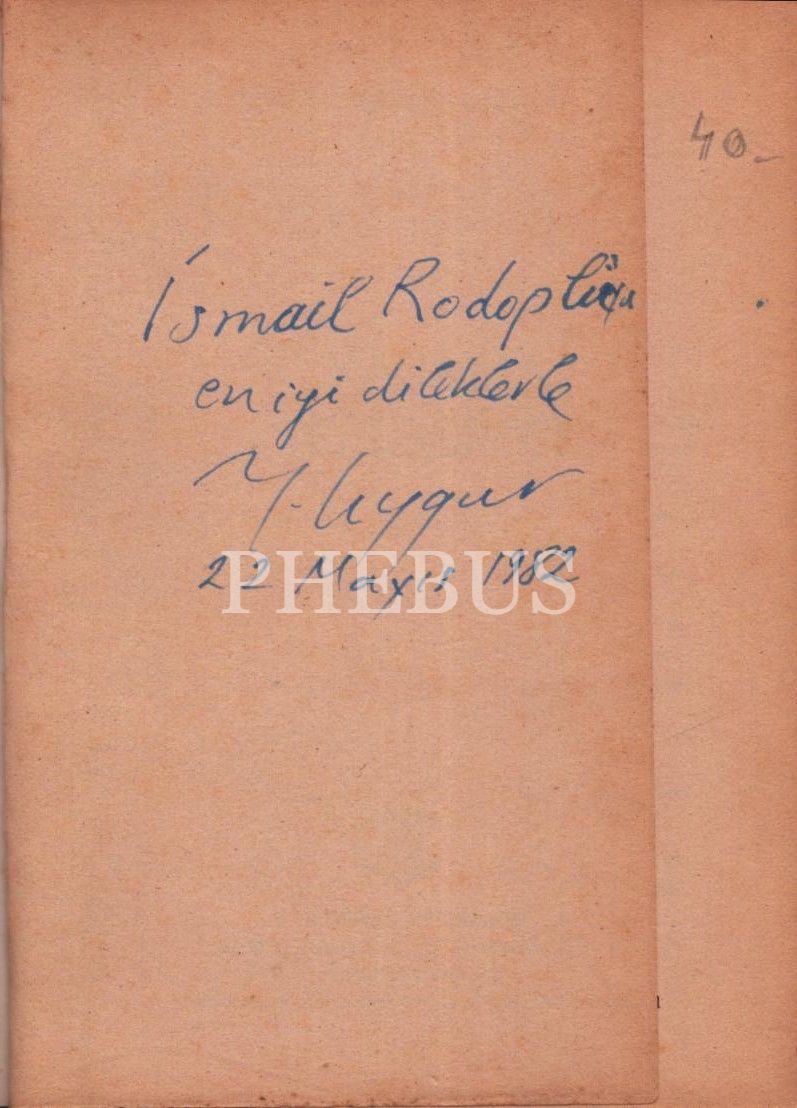 40.-
İsmail Rodoplu'ya
en iyi dileklerle
Y. Uygur
22 Mayıs 1982
PHEBUS